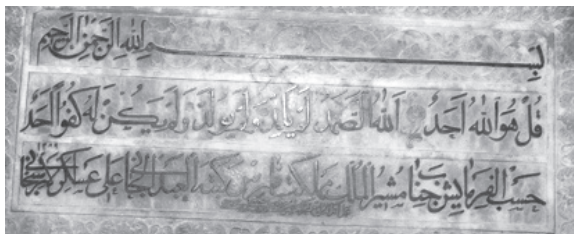 بسم الله الرحمن الرحيم
قل هو الله أحد الله الصمد لم يلد ولم يولد ولم يكن له كفوا أحد
حسب الفرمایش جناب مشیر الملک کتبه العبد علی عسکر